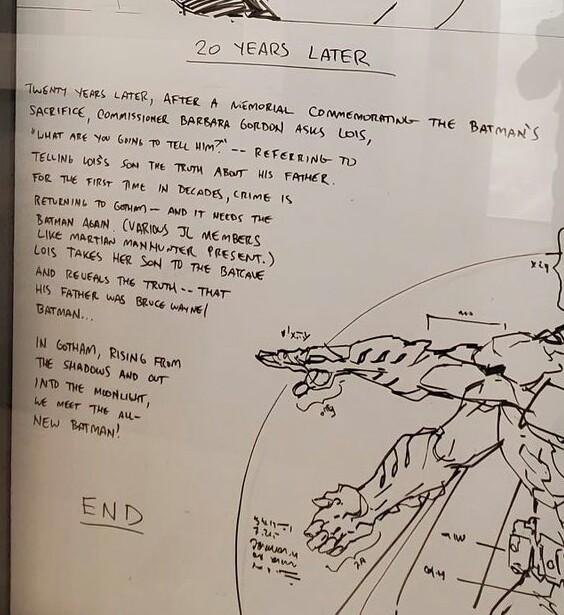 20 YEARS LATER
TWENTY YEARS LATER, AFTER A MEMORIAL COMMEMORATING THE BATMAN'S
SACRIFICE, COMMISSIONER BARBARA GORDON ASKS LOIS,
"WHAT ARE YOU GOING TO TELL HIM?" -- REFERRING TO
TELLING LOIS'S SON THE TRUTH ABOUT HIS FATHER.
FOR THE FIRST TIME IN DECADES, CRIME IS
RETURNING TO GOTHAM -- AND IT NEEDS THE
BATMAN AGAIN. (VARIOUS JL MEMBERS
LIKE MARTIAN MANHUNTER PRESENT.)
LOIS TAKES HER SON TO THE BATCAVE
AND REVEALS THE TRUTH -- THAT
HIS FATHER WAS BRUCE WAYNE/
BATMAN...
IN GOTHAM, RISING FROM
THE SHADOWS AND OUT
INTO THE MOONLIGHT,
WE MEET THE ALL-
NEW BATMAN!
END